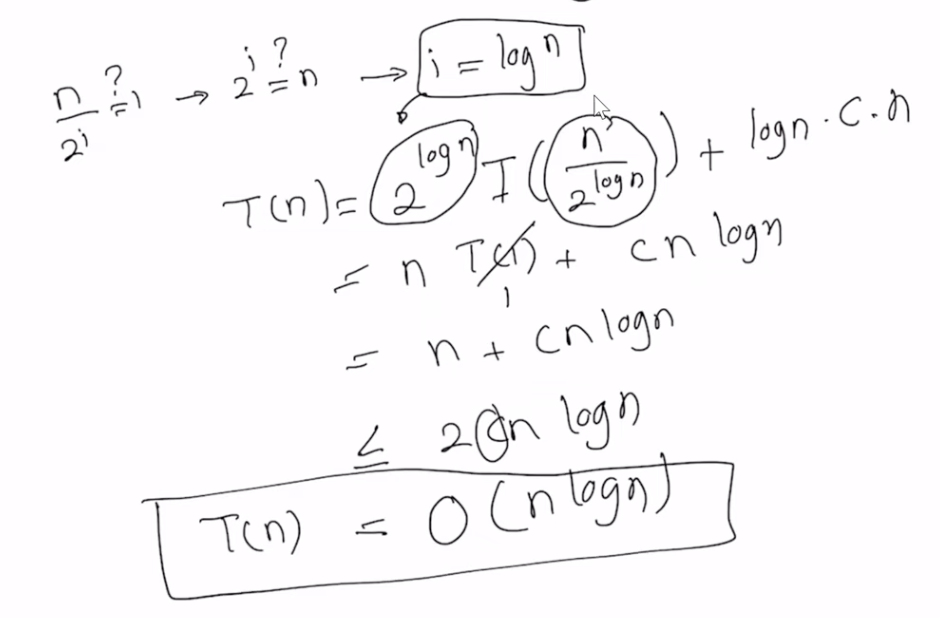 n/2^i ?= 1 → 2^i ?= n → i = log n
T(n) = 2^(log n) T(n/2^(log n)) + log n · c · n
= n T(1) + cn log n
1
= n + cn log n
≤ 2cn log n
T(n) = O(n log n)